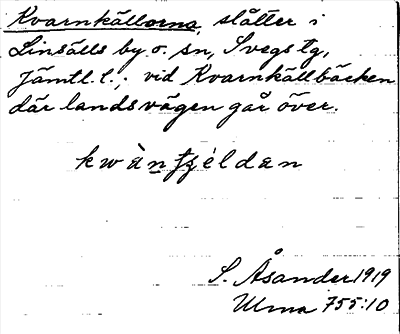 Kvarnkällorna, slåtter i
Linsälls by o. sn, Svegs tg,
Jämtl. l.; vid Kvarnkällbäcken
där landsvägen går över.
kwàṇtʂéldan
S. Åsander 1919
Ulma 755:10